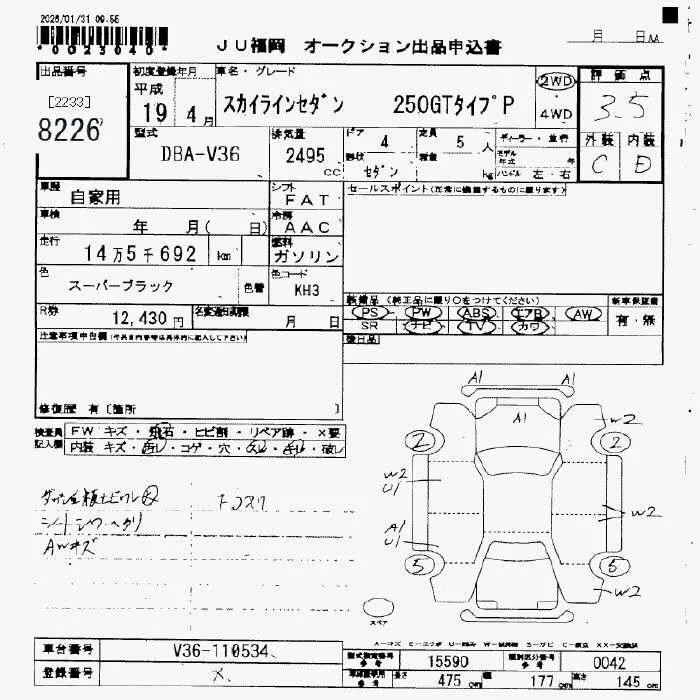 2026/01/31 09:55
*0023040*
JU福岡 オークション出品申込書
月 日
出品番号
[2233]
8226
初度登録年月
平成
19 4月
車名・グレード
スカイラインセダン 250GTタイプP
2WD
4WD
評価点
3.5
外装 内装
C D
型式
DBA-V36
排気量
2495
cc
ドア 4
形状 セダン
定員 5 人
積載 kg
ディーラー・並行
モデル年式 年
ハンドル 左・右
車歴 自家用
シフト FAT
セールスポイント(正常に機能するものに限ります)
車検 年 月( 日)
冷房 AAC
走行 14万5千692 km
燃料 ガソリン
色 スーパーブラック 色替
色コード KH3
装備品 (純正品に限り○をつけてください)
新車保証書
PS PW ABS エアB AW
SR ナビ TV カワ
有・無
R券 12,430円
名変期限 月 日
後日品
注意事項申告欄
修復歴 有 [箇所 ]
検査員記入欄
FW キズ・飛石・ヒビ割・リペア跡・×要
内装 キズ・汚レ・コゲ・穴・スレ・キレ・破レ
シートシワ ヘタリ
AWキズ
A1 A1
A1
W2
2 2
W2
U1
W2
A1
U1
5 5
W2
スペア
車台番号 V36-110534
登録番号 ×
型式指定番号 参考 15590
類別区分番号 参考 0042
長さ 475 cm
幅 177 cm
高さ 145 cm